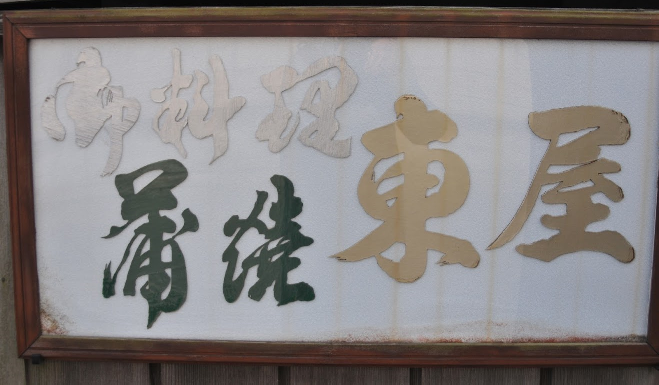 御料理
蒲焼
東屋